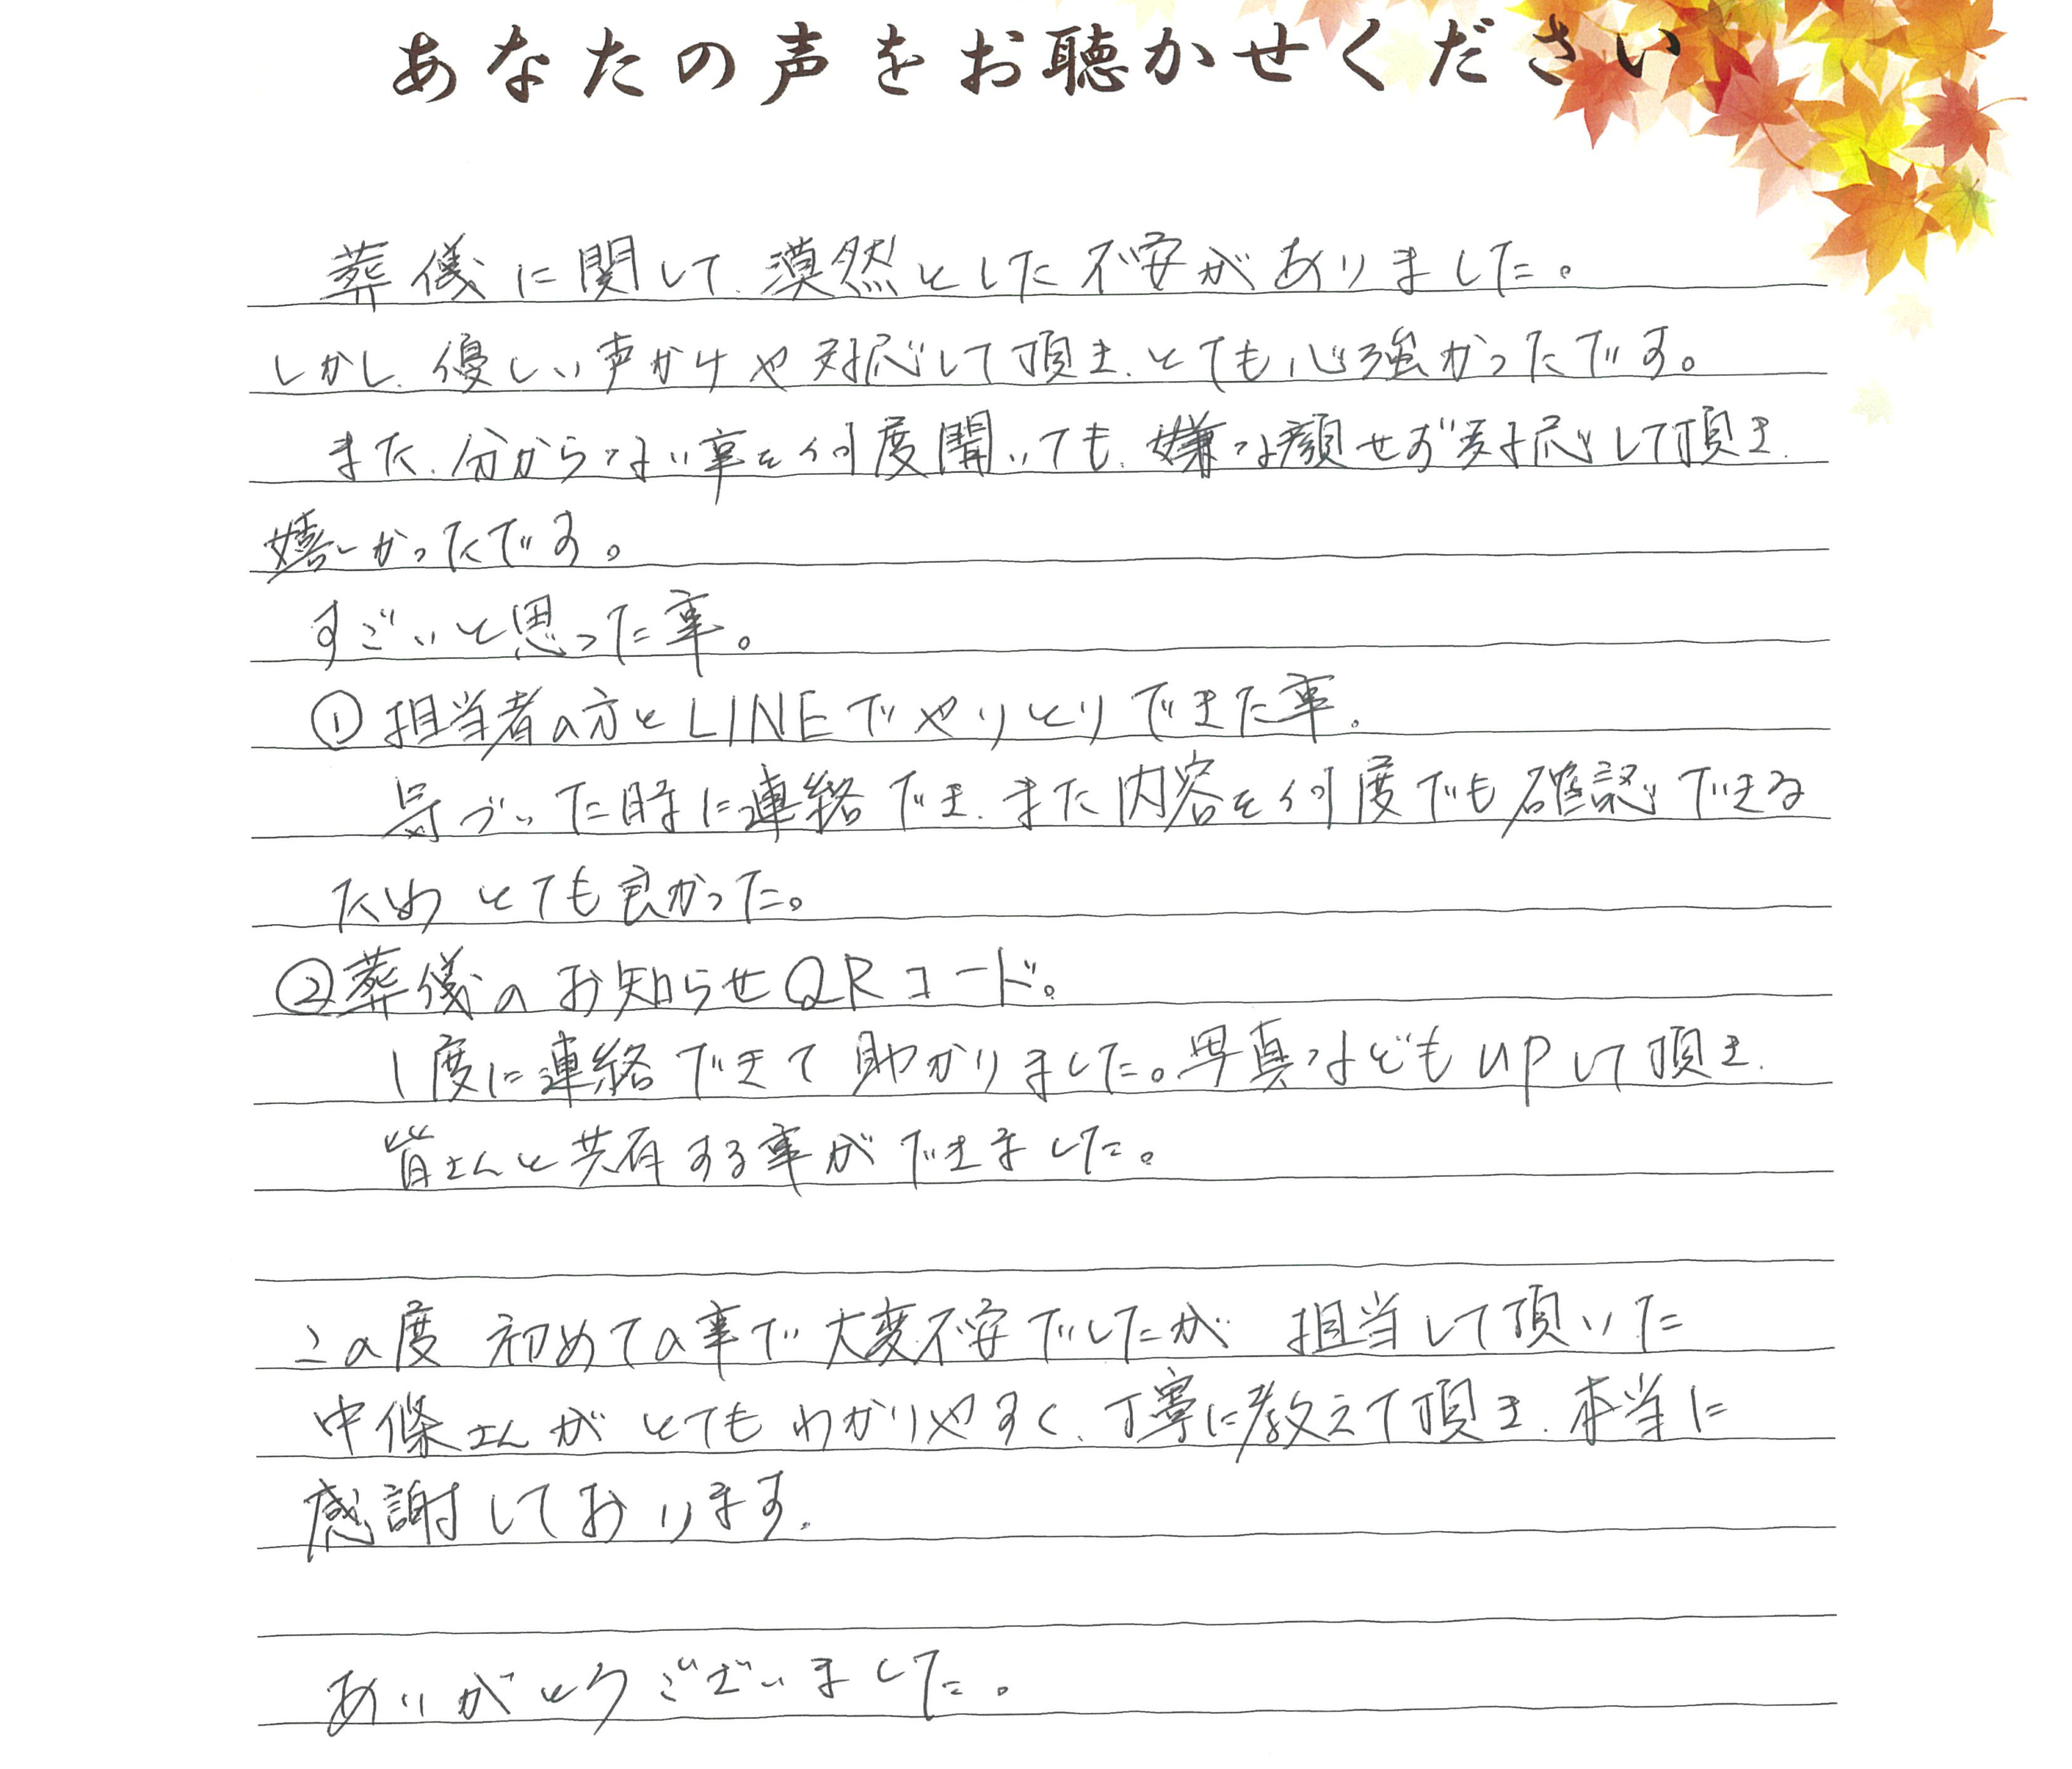 あなたの声をお聴かせください
葬儀に関して、漠然とした不安がありました。
しかし、優しい声かけや対応して頂き、とても心強かったです。
また、分からない事を何度聞いても、嫌な顔せず対応して頂き、
嬉しかったです。
すごいと思った事。
①担当者の方とLINEでやりとりできた事。
気づいた時に連絡でき、また内容を何度でも確認できる
ため とても良かった。
②葬儀のお知らせQRコード。
1度に連絡できて助かりました。写真などもUPして頂き、
皆さんと共有する事ができました。
この度 初めての事で大変不安でしたが 担当して頂いた
中條さんが とてもわかりやすく、丁寧に教えて頂き、本当に
感謝しております。
ありがとうございました。